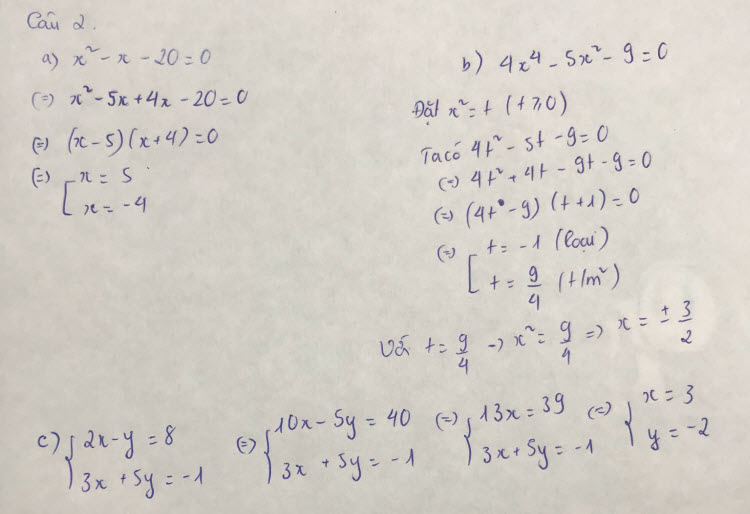 Câu 2.
a) x² - x - 20 = 0
(=) x² - 5x + 4x - 20 = 0
(=) (x - 5)(x + 4) = 0
(=) [ x = 5
x = -4
b) 4x⁴ - 5x² - 9 = 0
Đặt x² = t (t ≥ 0)
Ta có 4t² - 5t - 9 = 0
(=) 4t² + 4t - 9t - 9 = 0
(=) (4t - 9)(t + 1) = 0
(=) [ t = -1 (loại)
t = 9/4 (t/m²)
Với t = 9/4 → x² = 9/4 => x = ± 3/2
c) { 2x - y = 8 (=) { 10x - 5y = 40 (=) { 13x = 39 (=) { x = 3
3x + 5y = -1 3x + 5y = -1 3x + 5y = -1 y = -2